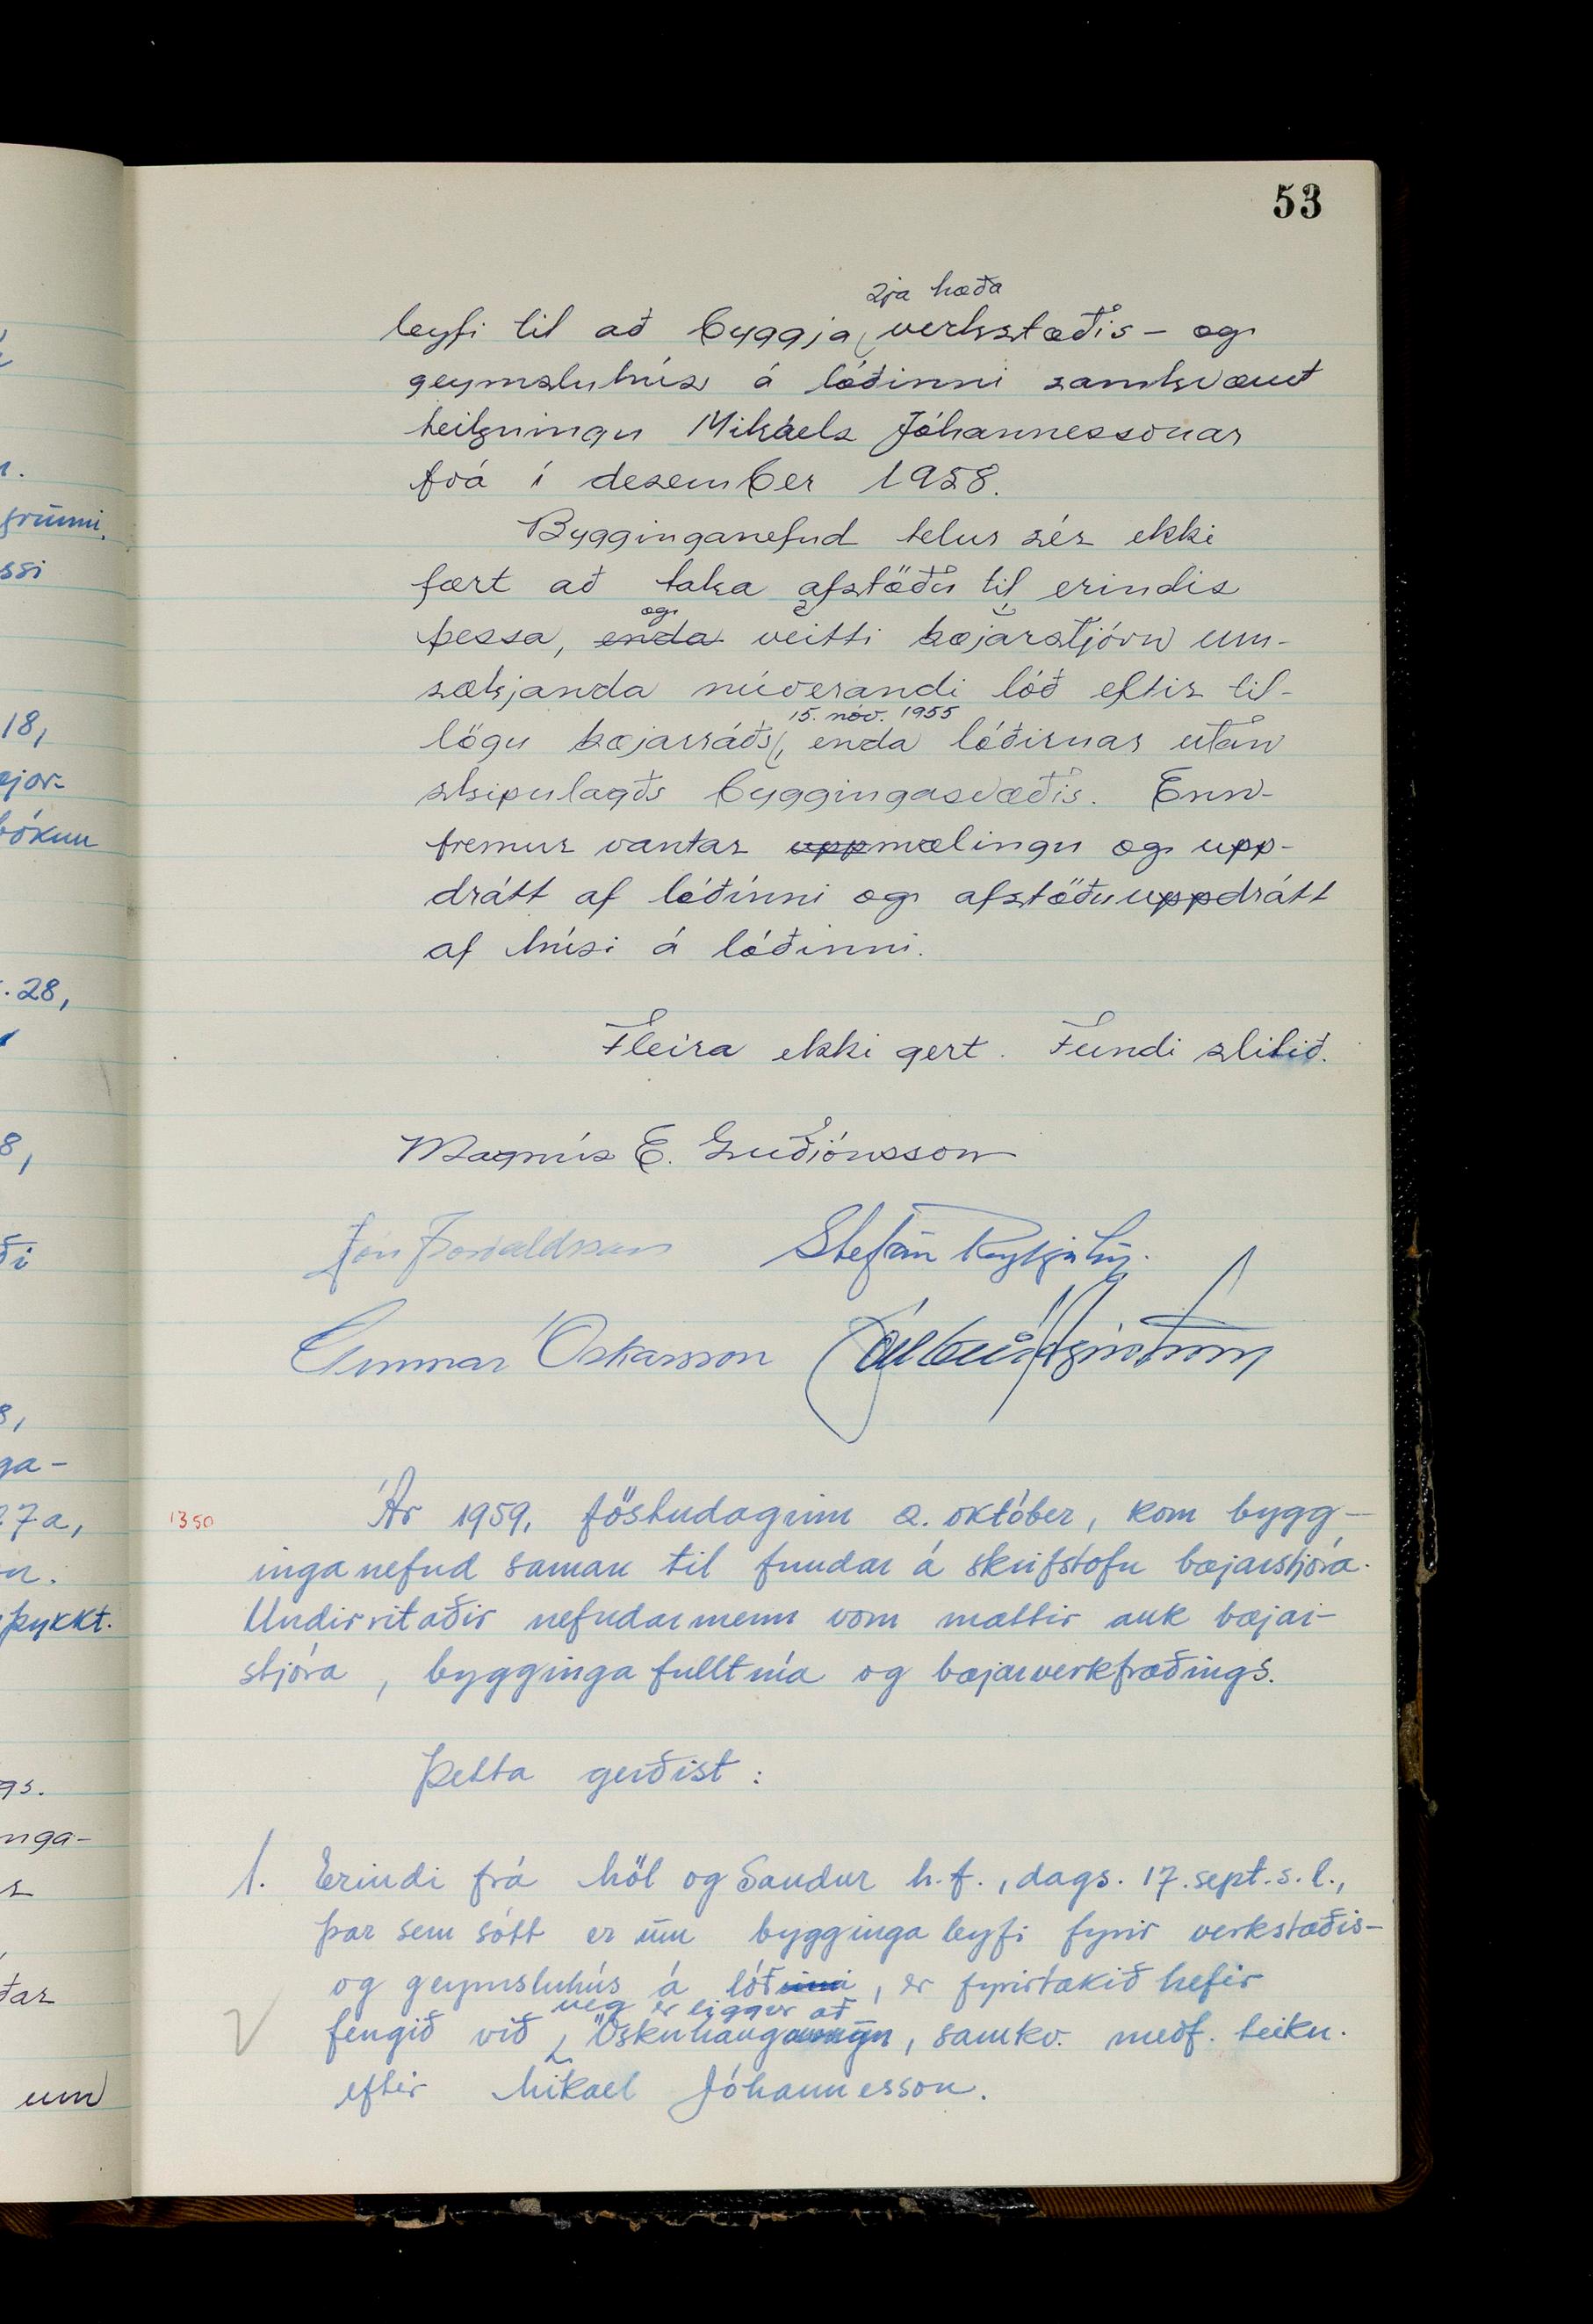 53
leyfi til að byggja 2ja hæða verkstæðis- og
geymsluhús á lóðinni samkvæmt
teikningu Mikaels Jóhannessonar
frá í desember 1958.
Bygginganefnd telur sér ekki
fært að taka afstöðu til erindis
þessa, enda og veitti bæjarstjórn um-
sækjanda núverandi lóð eftir til-
lögu bæjarráðs 15. nóv. 1955, enda lóðirnar utan
skipulagðs byggingasvæðis. Enn-
fremur vantar uppmælingu og upp-
drátt af lóðinni og afstöðuuppdrátt
af húsi á lóðinni.
Fleira ekki gert. Fundi slitið.
Magnús E. Guðjónsson
Jón Þorvaldsson Stefán Reykjalín.
Gunnar Óskarsson
1350
Ár 1959, föstudaginn 2. október, kom bygg-
inganefnd saman til fundar á skrifstofu bæjarstjóra.
Undirritaðir nefndarmenn voru mættir auk bæjar-
stjóra, byggingafulltrúa og bæjarverkfræðings.
Þetta gerðist:
1. Erindi frá Möl og Sandur h.f., dags. 17. sept. s.l.,
þar sem sótt er um byggingaleyfi fyrir verkstæðis-
og geymsluhús á lóðinni, er fyrirtækið hefir
fengið við veg er liggur að Öskuhaugana, samkv. meðf. teikn.
eftir Mikael Jóhannesson.